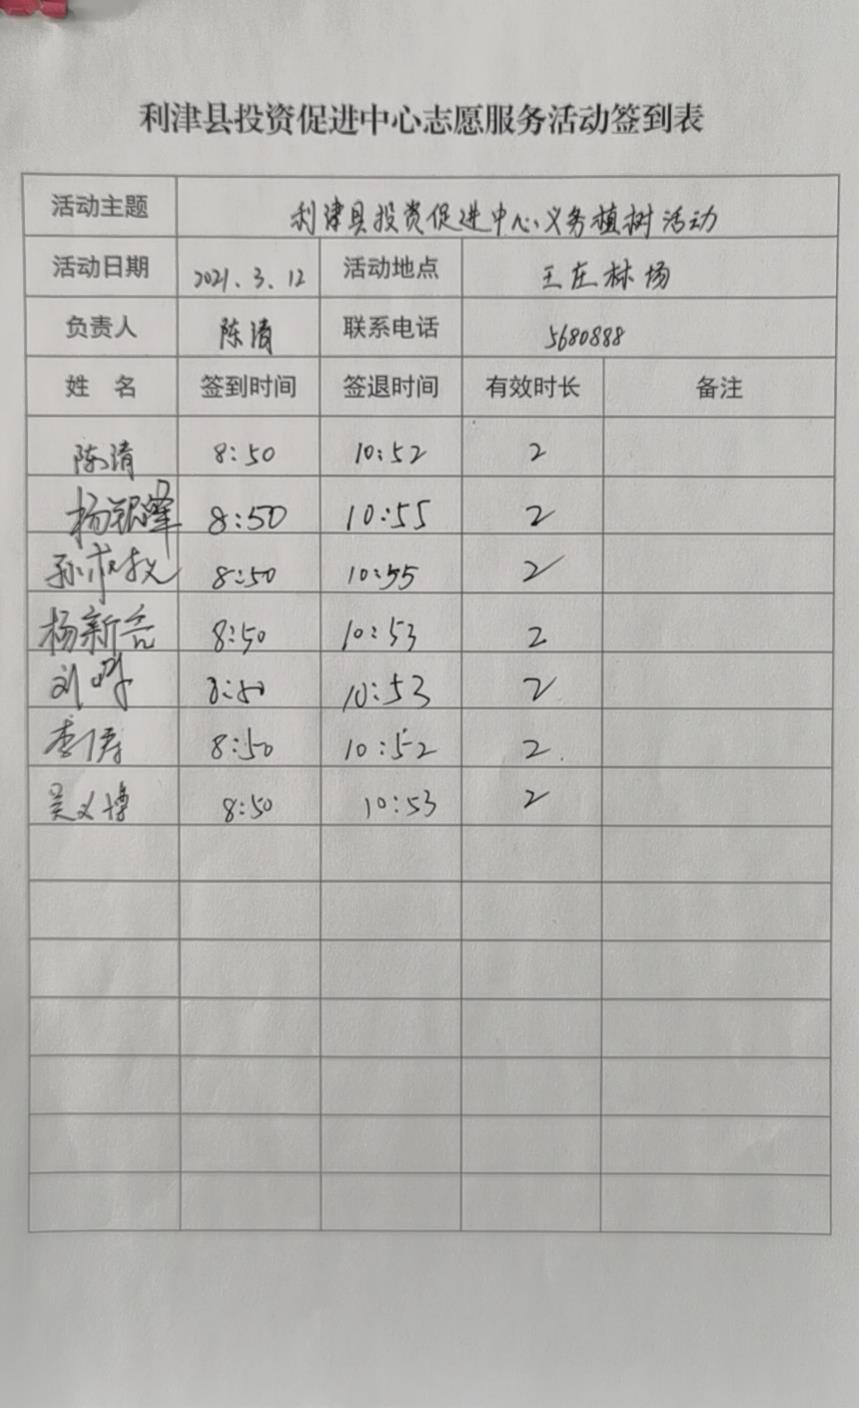 利津县投资促进中心志愿服务活动签到表
活动主题 利津县投资促进中心义务植树活动
活动日期 2021.3.12 活动地点 王庄林场
负责人 陈清 联系电话 5680888
姓 名 签到时间 签退时间 有效时长 备注
陈清 8:50 10:52 2
杨银峰 8:50 10:55 2
孙 8:50 10:55 2
杨新 8:50 10:53 2
刘 8:50 10:53 2
李 8:50 10:52 2
吴义博 8:50 10:53 2